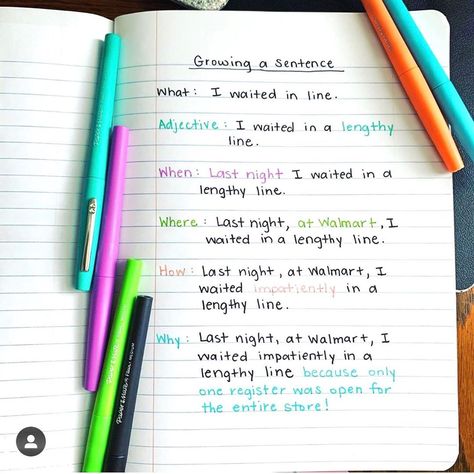 Growing a Sentence
What: I waited in line.
Adjective: I waited in a lengthy
line.
When: Last night I waited in a
lengthy line.
Where: Last night, at Walmart, I
waited in a lengthy line.
How: Last night, at Walmart, I
waited impatiently in a
lengthy line.
Why: Last night, at Walmart, I
waited impatiently in a
lengthy line because only
one register was open for
the entire store!